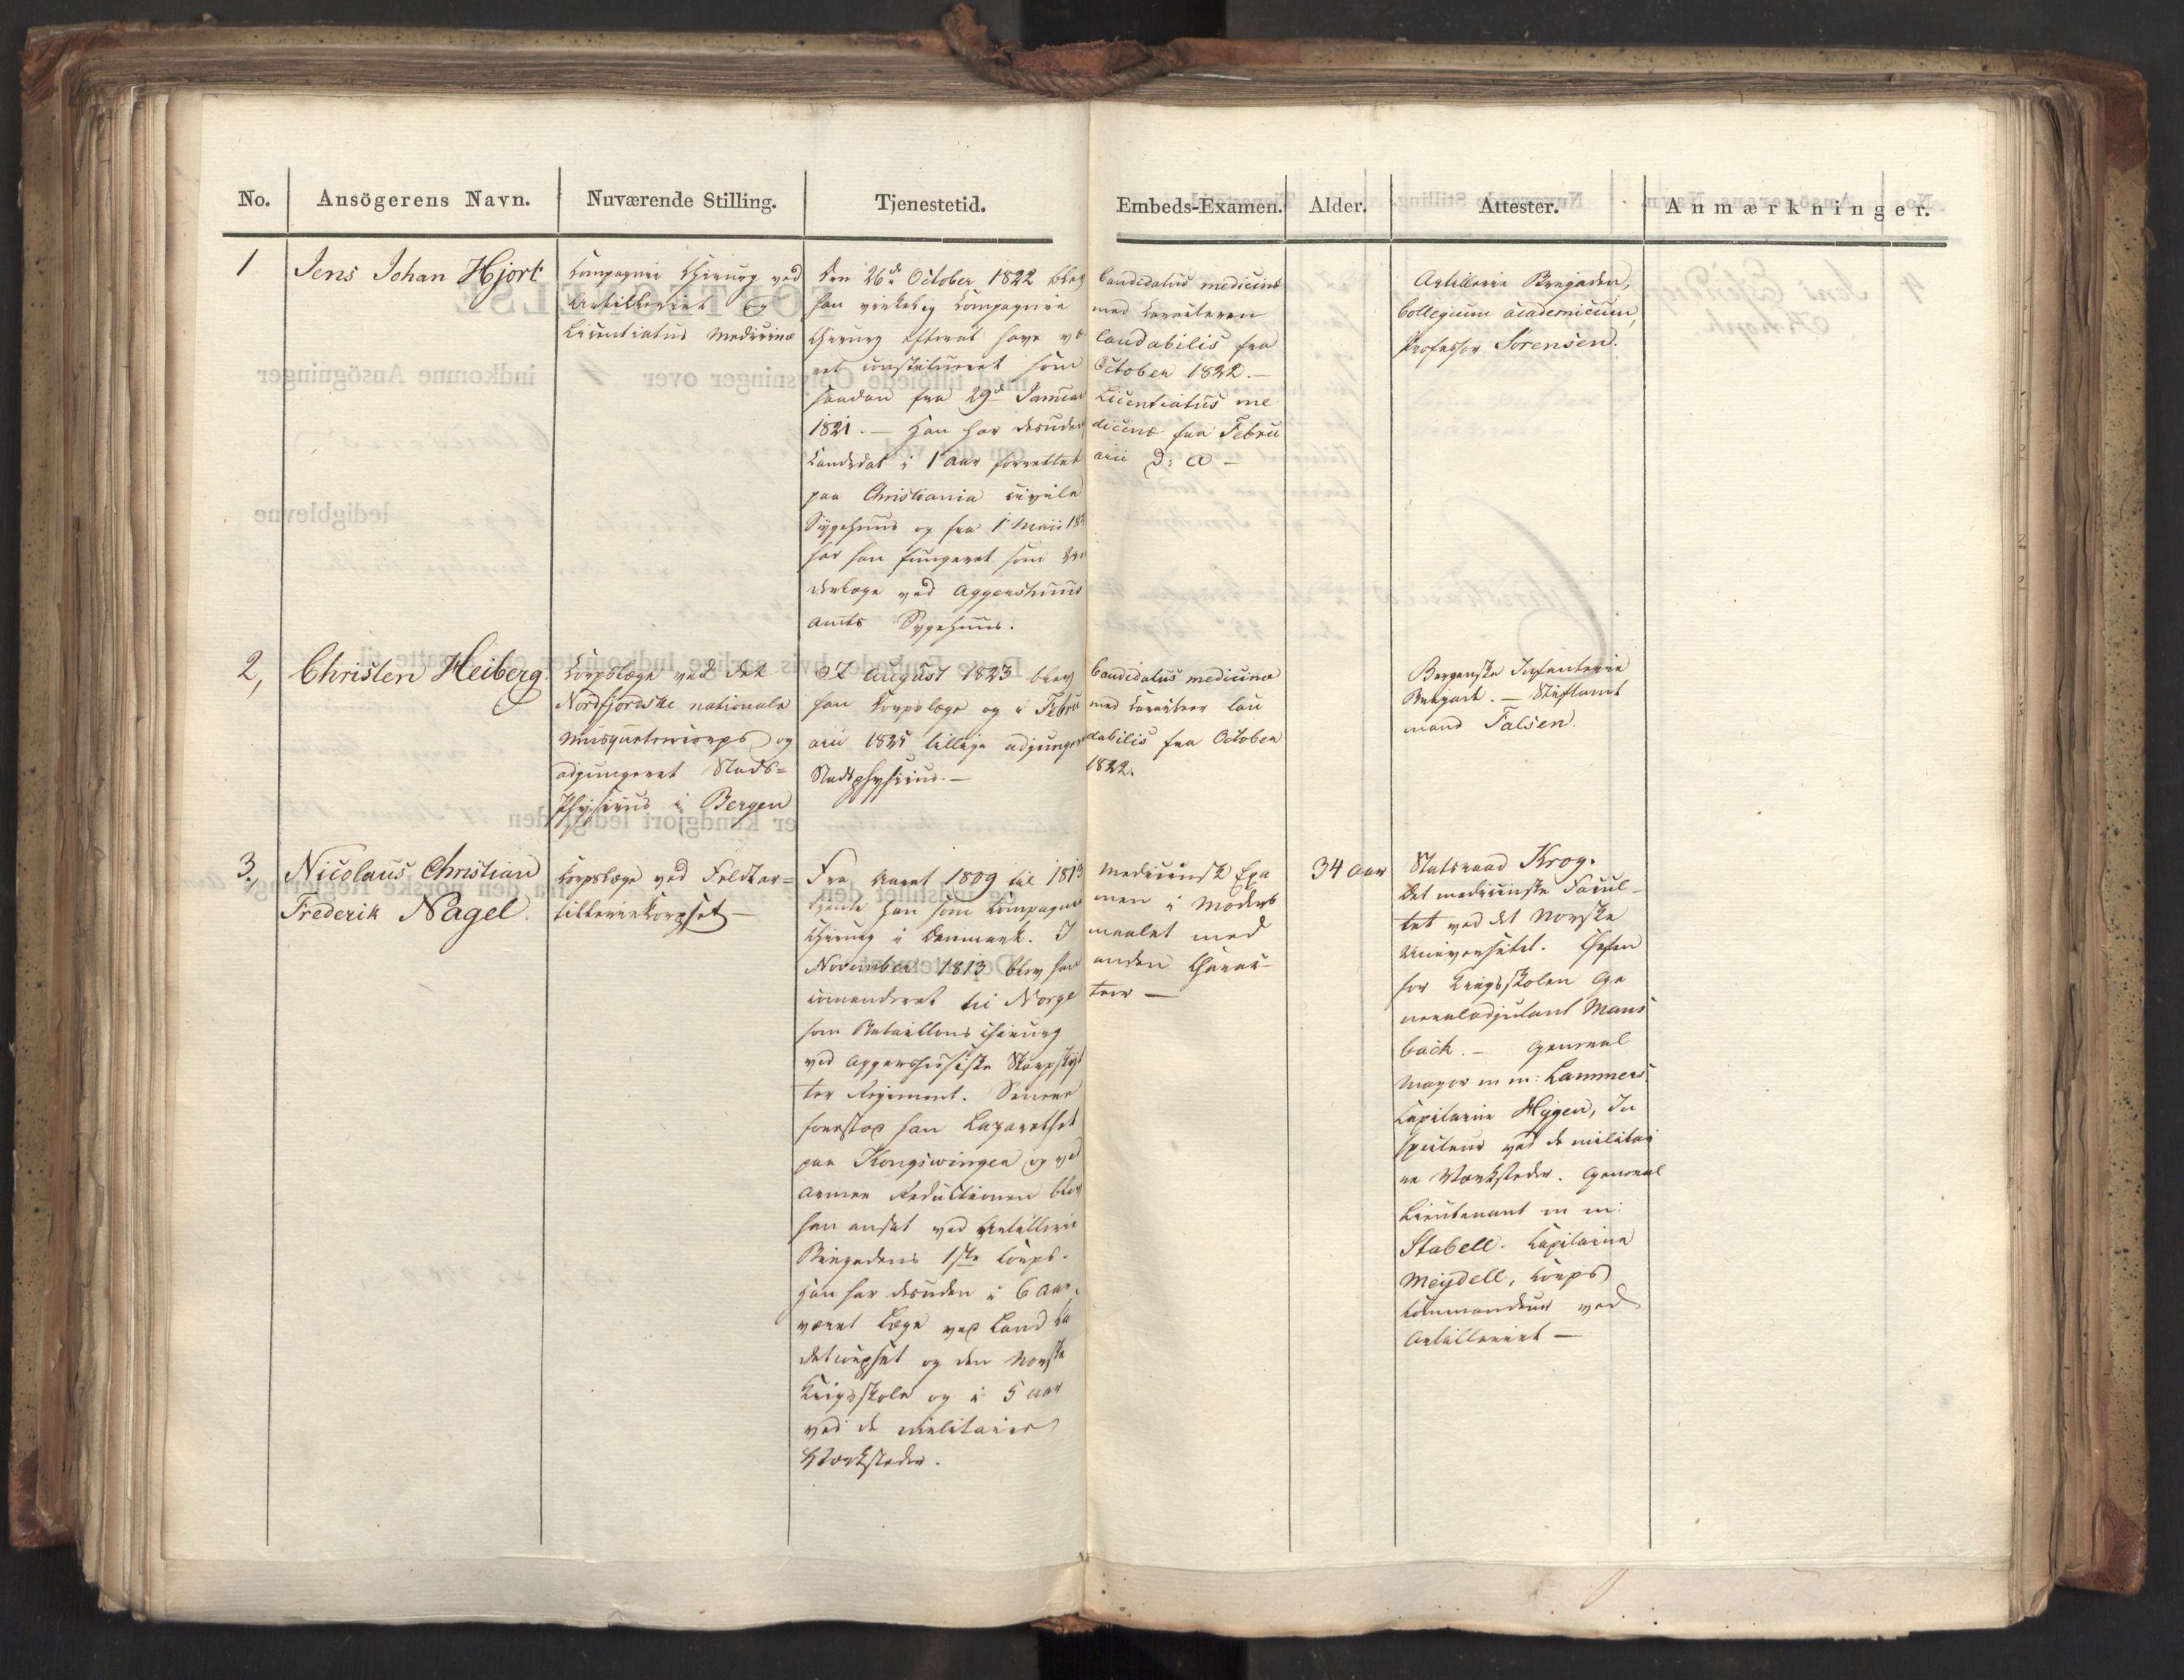 No.
Ansögerens Navn.
Nuværende Stilling.
Tjenestetid.
Embeds-Examen.
Alder.
Attester.
Anmærkninger.
1
Jens Johan Hjort
Compagnie Chirurg ved
Artilleriet og
Licentiatus Medicinæ
Den 26de October 1822 blev
han virkelig Compagnie
Chirurg efterat have væ
ret constitueret som
saadan fra 29de Januar
1821. — Han har desuden
Candidat i 1 Aar forrettet
paa Christiania civile
Sygehuus og fra 1 Maii 18
har han fungeret som
derlæge ved Aggershuus
Amts Sygehuus.
Candidatus medicinæ
med Caracteren
laudabilis fra
October 1822. —
Licentiatus me
dicinæ fra Febru
arii d: A —
Artillerie Brigaden,
Collegium academicum,
Professor Sörensen.
2,
Christen Heiberg.
Corpslæge ved det
Nordfjordske nationale
Musqueteercorps og
adjungeret Stads=
Physicus i Bergen
I August 1823 blev
han Corpslæge og i Febru
arii 1825 tillige adjungeret
Stadsphysicus. —
Candidatus medicinæ
med Caracteer lau
dabilis fra October
1822.
Bergenske Infanterie
Brigade. — Stiftamt
mand Falsen.
3,
Nicolaus Christian
Frederik Nagel.
Corpslæge ved Feldtar=
tillerieCorpset —
Fra Aaret 1809 til 1813
tjente han som Compagnie
Chirurg i Danmark. I
November 1813 blev han
comanderet til Norge
som Batallions chirurg
ved Aggershusiske Skarpskyt
ter Regiment. Senere
forestod han Lazarethet
paa Kongswinger og ved
Armee Reductionen blev
han ansat ved Artillerie
Brigadens 1ste Corps.
Han har desuden i 6 Aar
været Læge ved Land Ca
detcorpset og den Norske
Krigsskole og i 5 Aar
ved de militaire
Værksteder.
Medicinsk Exa
men i Moders
maalet med
anden Charac-
teer —
34 Aar
Statsraad Krog.
Det medicinske Facul-
tet ved det Norske
Universitet. Chefen
for Krigsskolen Ge
neraladjutant Mans
bach. — General
Mayor m m: Lammers.
Capitaine Hÿgen, In
specteur ved de militai
re Værksteder. General
Lieutenant m m:
Stabell. Capitaine
Meydell, Corps
Commandeur ved
Artilleriet —